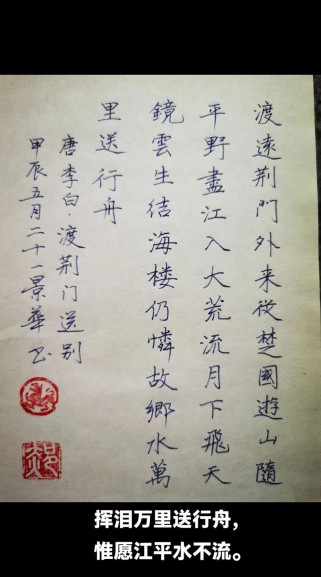 渡遠荆門外来從楚國遊山隨
平野盡江入大荒流月下飛天
鏡雲生结海楼仍憐故鄉水萬
里送行舟
唐李白·渡荆门送别
甲辰五月二十一景華书
挥泪万里送行舟，
惟愿江平水不流。